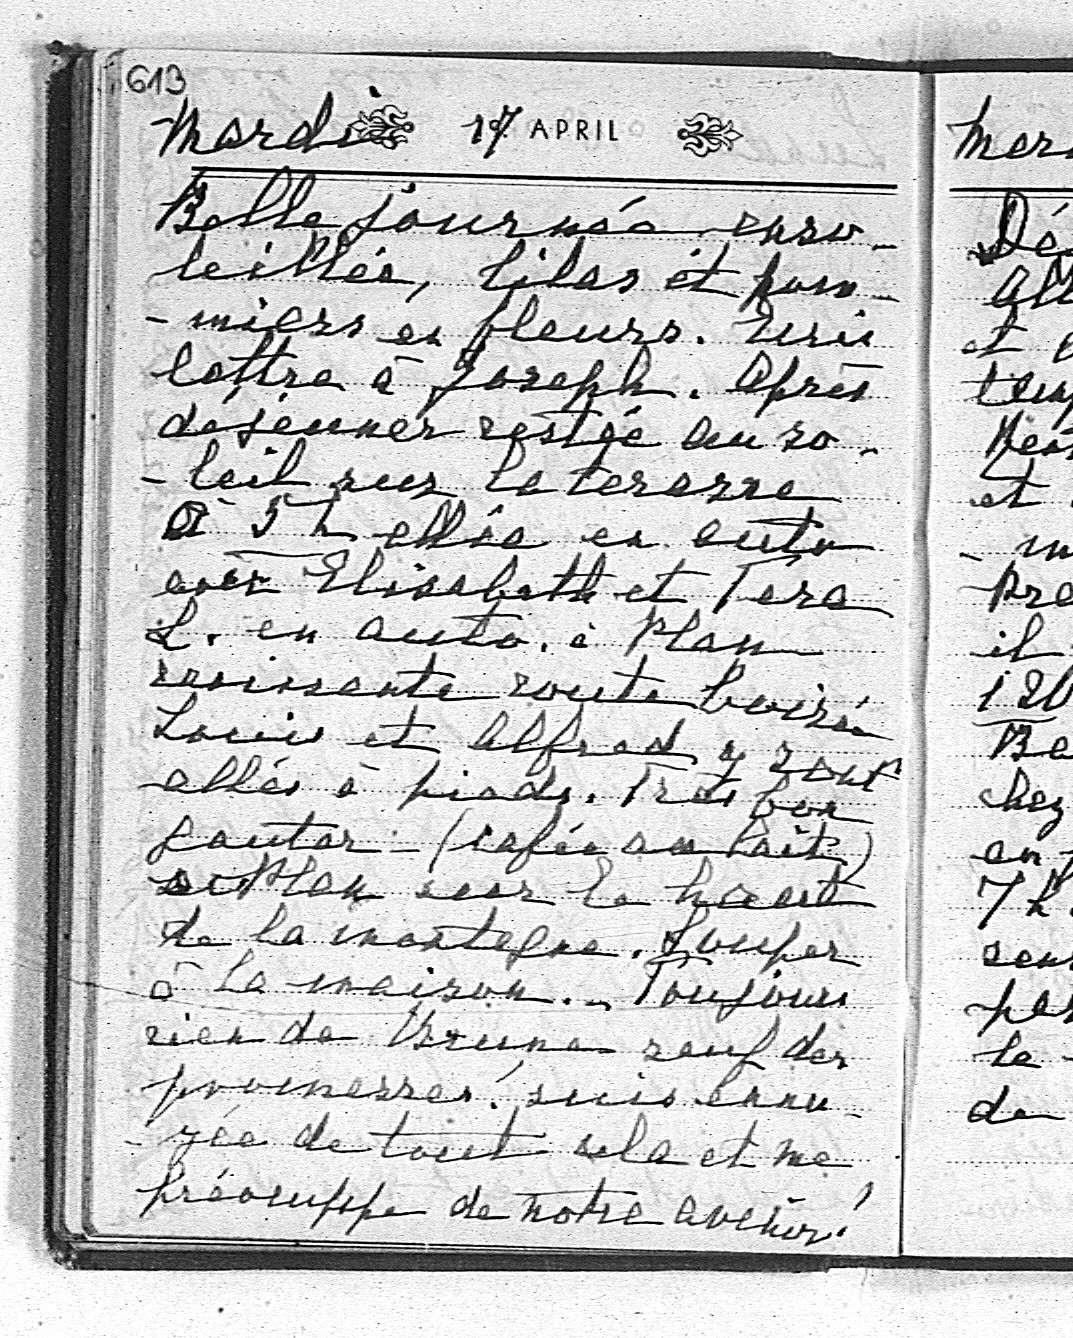 613
Mardi 17 APRIL
Belle journée enso-
leillée, lilas et pom-
-miers en fleurs. Ecrit
lettre à Joseph. Après
dejeuner restée au so-
-leil sur la terasse
à 5 h allée en auto
avec Elisabeth et Tera
L. en auto. à Plan
ravissante route boisée
Louis et Alfred y sont
allés à pieds. Très bon
gouter (cafée au lait)
Plan sur le haut
de la montagne. Souper
à la maison. Toujours
rien de Bruno sauf des
promesses! suis ennu-
-yée de tout cela et me
préocuppe de notre avenir!
Mer
Dé
All
et
temp
et
- m
Pre
il
120
Be
chez
en
7 h.
le
de